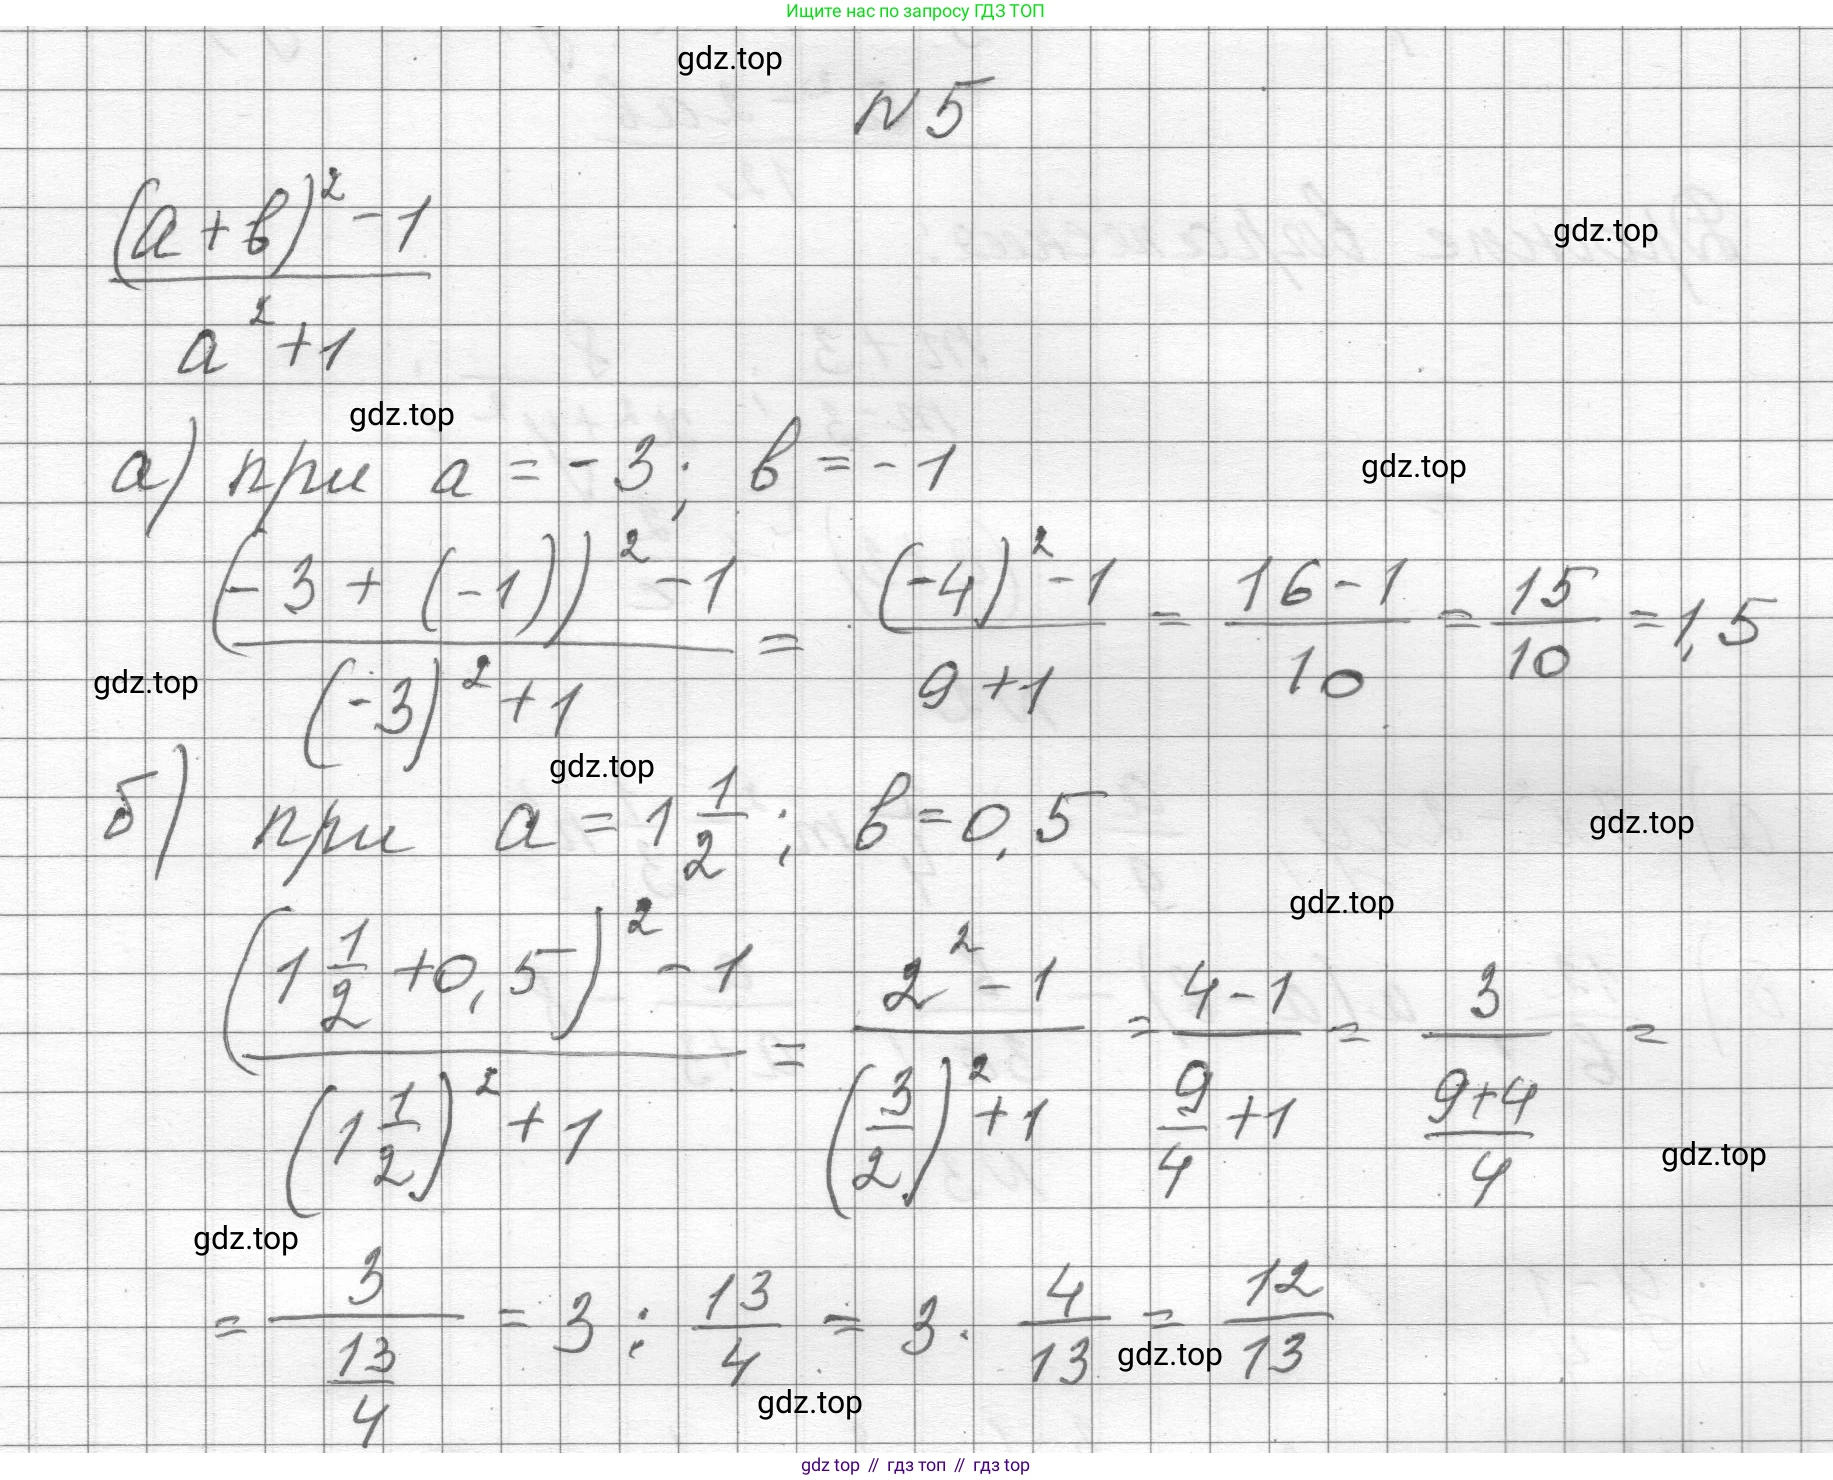 Ищите нас по запросу ГДЗ ТОП
gdz.top
N 5
((a+b)² - 1)/(a² + 1)
gdz.top
gdz.top
а) при a = -3; b = -1
gdz.top
(-3 + (-1))² - 1/((-3)² + 1) = ((-4)² - 1)/(9 + 1) = (16 - 1)/10 = 15/10 = 1,5
gdz.top
gdz.top
б) при a = 1 1/2; b = 0,5
gdz.top
gdz.top
((1 1/2 + 0,5)² - 1)/((1 1/2)² + 1) = (2² - 1)/((3/2)² + 1) = (4 - 1)/(9/4 + 1) = 3/((9+4)/4) =
gdz.top
gdz.top
= 3/(13/4) = 3 : 13/4 = 3 · 4/13 = 12/13
gdz.top
gdz.top
gdz top // гдз топ // гдз top